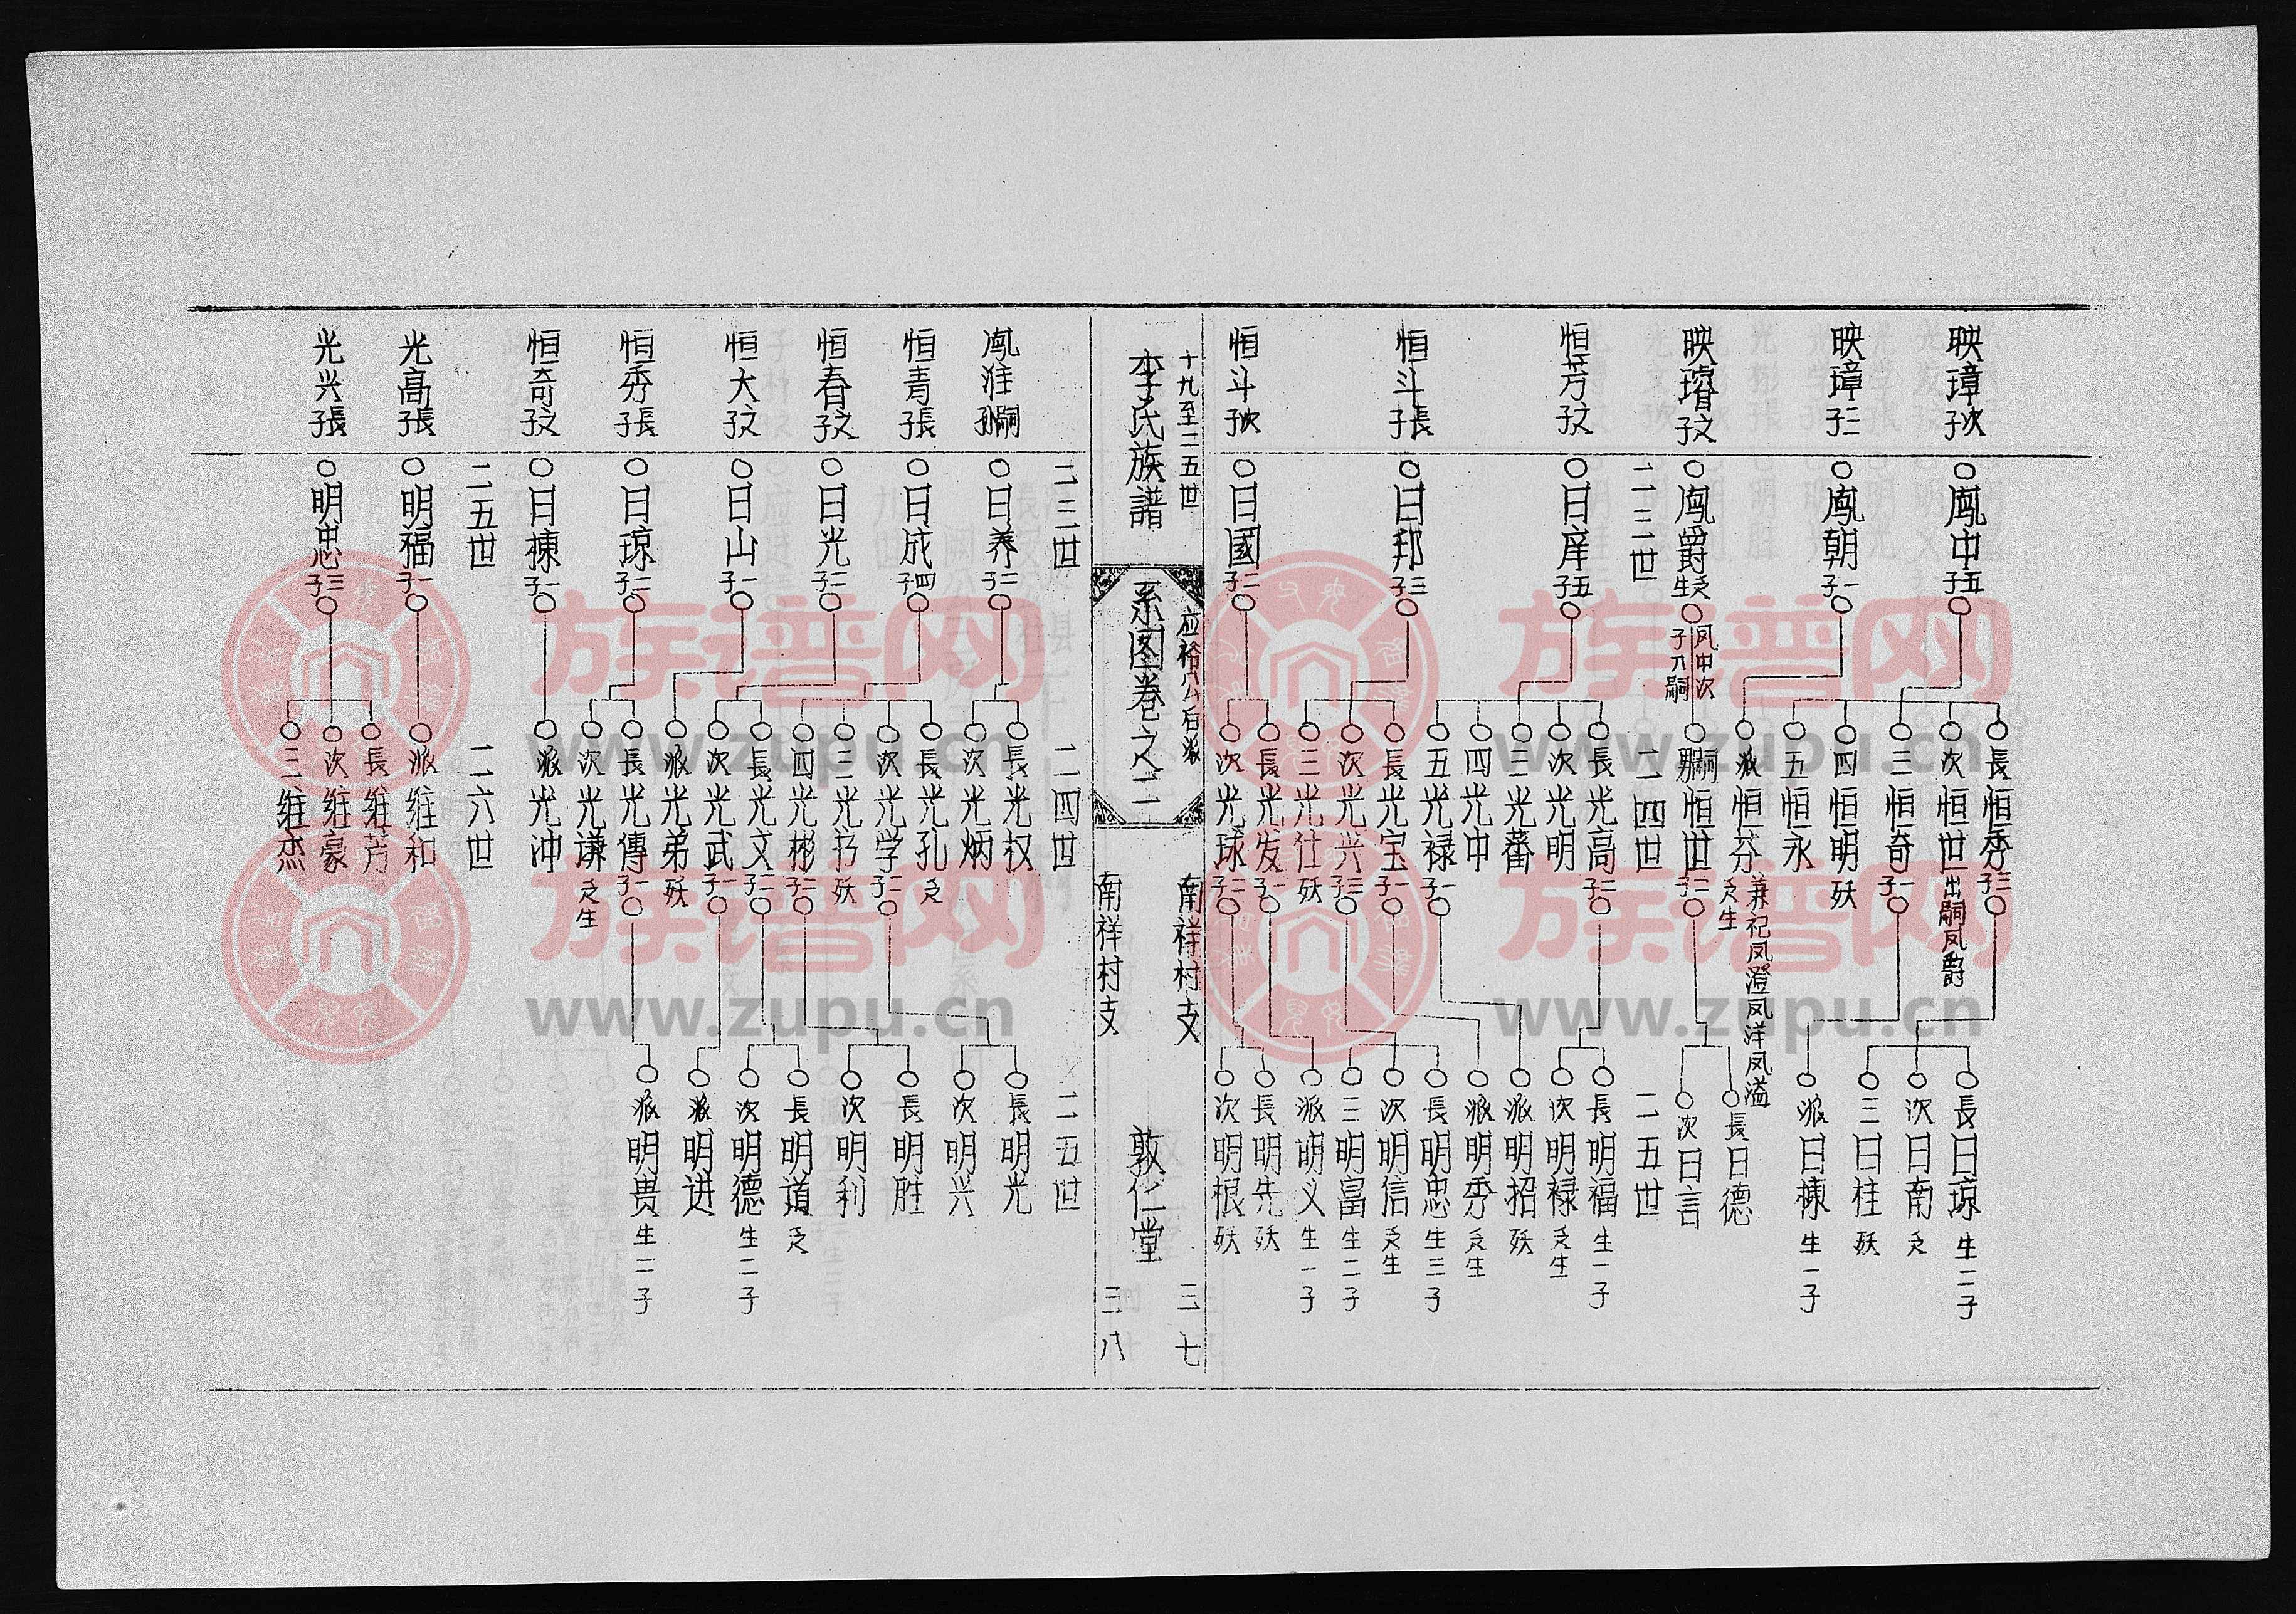 映璋次子
○鳳中五子
長恒秀三子
次恒世出嗣凤爵
三恒奇一子
四恒明殁
五恒永
長日琼生二子
次日南乏
三日柱殁
派日棟生一子
映璋二子
○鳳朝一子
派恒芬乏生
兼祀凤澄凤洋凤溢
映璿文子
○鳳爵乏生
凤中次子入嗣
嗣男恒世二子
長日德
次日言
二三世
二四世
二五世
恒芳文子
○日庠五子
長光高二子
次光明
三光蕃
四光中
五光禄一子
長明福生一子
次明禄乏生
派明招殁
恒斗長子
○日邦三子
長光宝一子
次光兴三子
三光仕殁
派明秀乏生
長明忠生三子
次明信乏生
三明富生二子
恒斗次子
○日國二子
長光发一子
次光球二子
派明义生一子
長明先殁
次明根殁
十九至二五世
李氏族譜
应裕公后派
系图卷之二
南祥村支
南祥村支
敦仁堂
三七
三八
二三世
二四世
二五世
鳳淮嗣孫
○日养二子
長光权
次光炳
恒青長子
○日成四子
長光孔乏
次光学二子
三光书殁
四光彬二子
長明光
次明兴
長明胜
次明利
恒春文子
○日光二子
長光文二子
次光武一子
長明道乏
次明德生二子
派明进
恒大文子
○日山一子
派光弟殁
恒秀長子
○日琼二子
長光傳一子
次光謙乏生
派明贵生二子
恒奇文子
○日棟一子
派光冲
二五世
二六世
光高長子
○明福一子
派维和
光兴長子
○明忠三子
長维芳
次维豪
三维杰
族谱网
www.zupu.cn
族谱网
www.zupu.cn
族谱网
www.zupu.cn
族谱网
www.zupu.cn